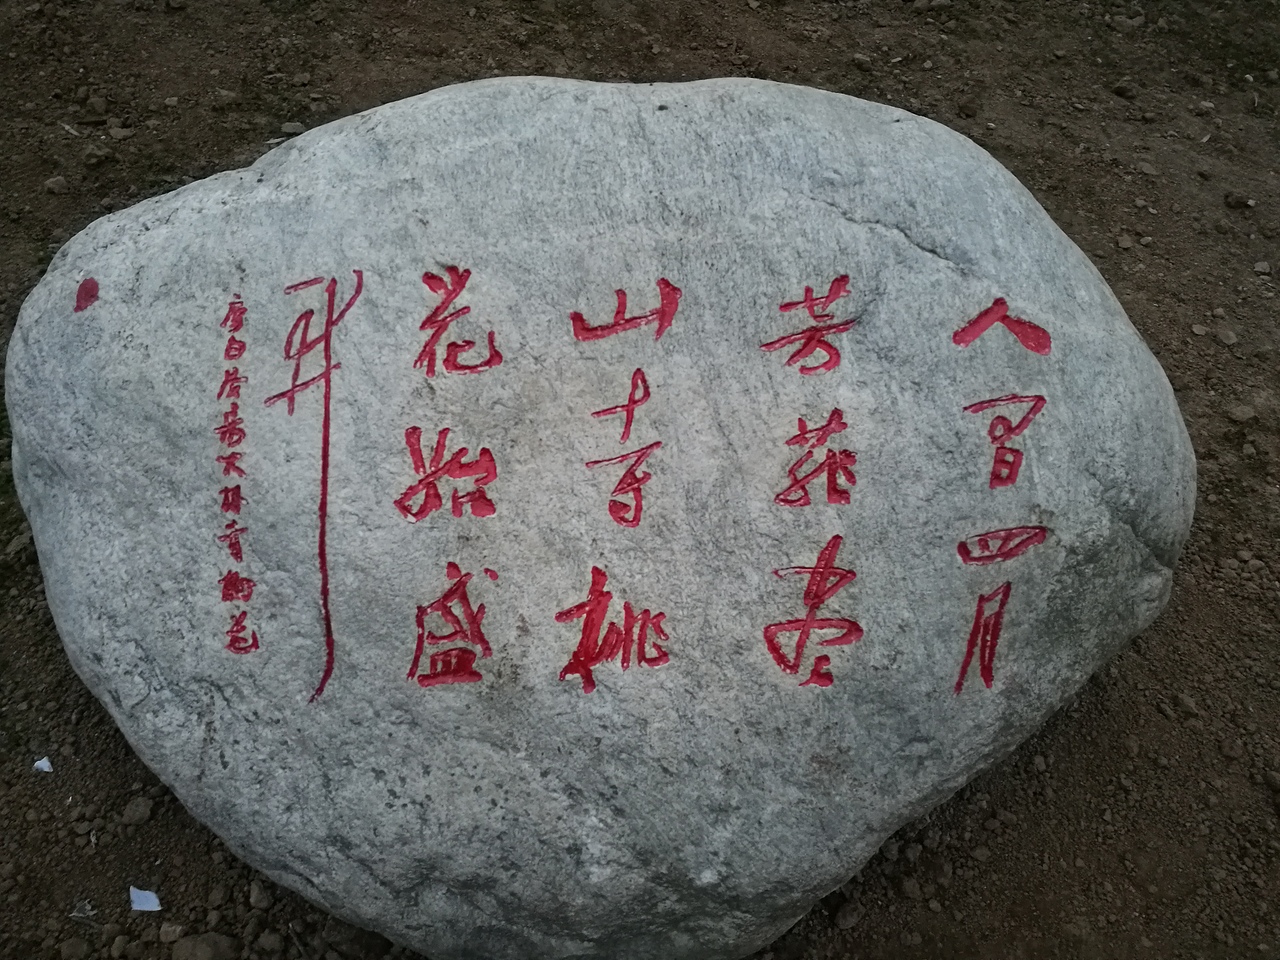 人间四月
芳菲尽
山寺桃
花始盛
开
唐白居易大林寺桃花